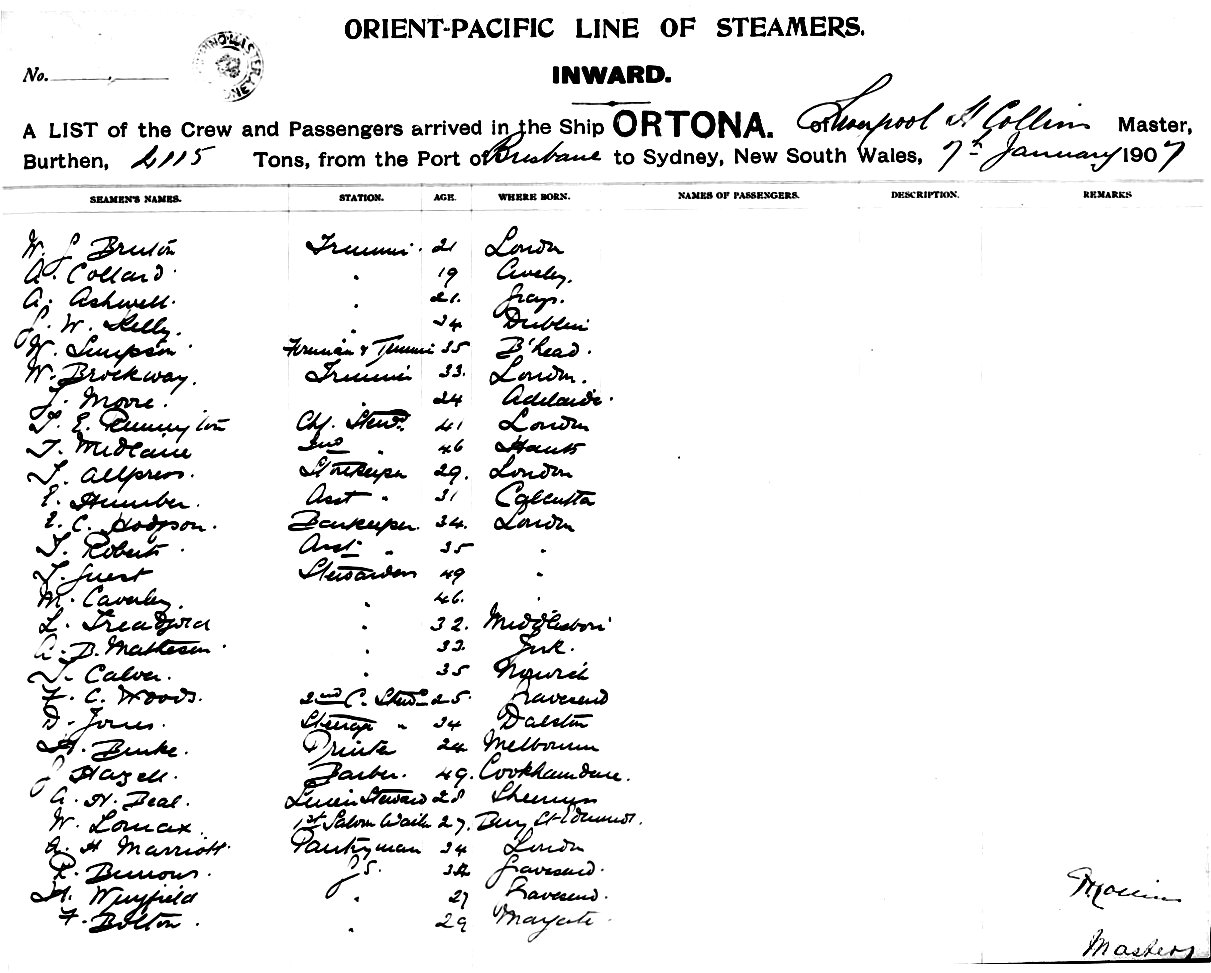 ORIENT-PACIFIC LINE OF STEAMERS.
No.
INWARD.
A LIST of the Crew and Passengers arrived in the Ship ORTONA. of Liverpool Collins Master,
Burthen, 4115 Tons, from the Port of Brisbane to Sydney, New South Wales, 7th January 1907
SEAMEN'S NAMES. STATION. AGE. WHERE BORN. NAMES OF PASSENGERS. DESCRIPTION. REMARKS
W. Bruton Trimmer 21 London
A. Collard 19 Aveley.
A. Ashwell. 21. Grays.
W. Kelly. 34 Dublin
W. Simpson Fireman & Trimmer 35 B'head.
W. Brockway. Trimmer 33. London.
J. Moore. 24 Adelaide.
E. Rennington Chf. Stewd. 41 London
T. Midlane 2nd " 46 Hants
T. Allpress. Storekeeper 29. London
E. Humber. Asst " 31 Calcutta
E. C. Hodgson. Barkeeper. 34. London
T. Roberts Asst " 35 "
J. Guest Stewardess 49 "
M. Caverley. " 46. "
L. Treadgold " 32. Middlesboro
A. B. Matheson. " 33 York.
T. Calver. " 35 Norwich
F. C. Woods. 2nd C. Stewd 25. Gravesend
D. Jones. Steerage " 34 Dalston
H. Burke. Printer 24 Melbourne
Hazell. Barber. 49. Cookhamdene.
A. H. Beal. Linen Steward 28 Sheerness
W. Lomax. 1st Saloon Waiter 27. Bury St Edmunds.
A. H. Marriott. Pantryman 34 London
R. Burrows. G.S. 32 Gravesend.
H. Wingfield " 27 Gravesend.
F. Bolton. " 29 Margate.
Collins
Master